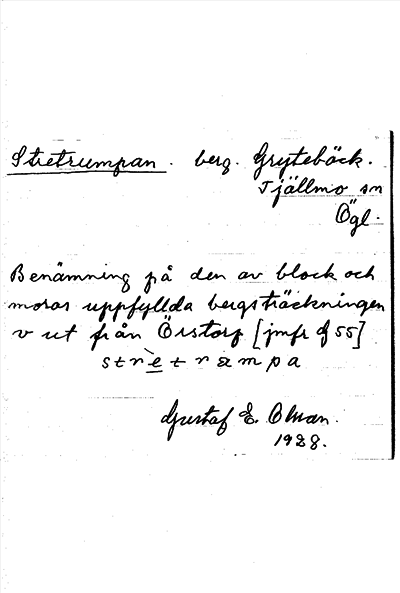 Stretrumpan. berg. Grytebäck.
Tjällmo sn
Ögl.
Benämning på den av block och
moras uppfyllda bergsträckningen
v ut från Örstorp [jmfr 55]
stretrampa
Gustaf E. Olman.
1928.